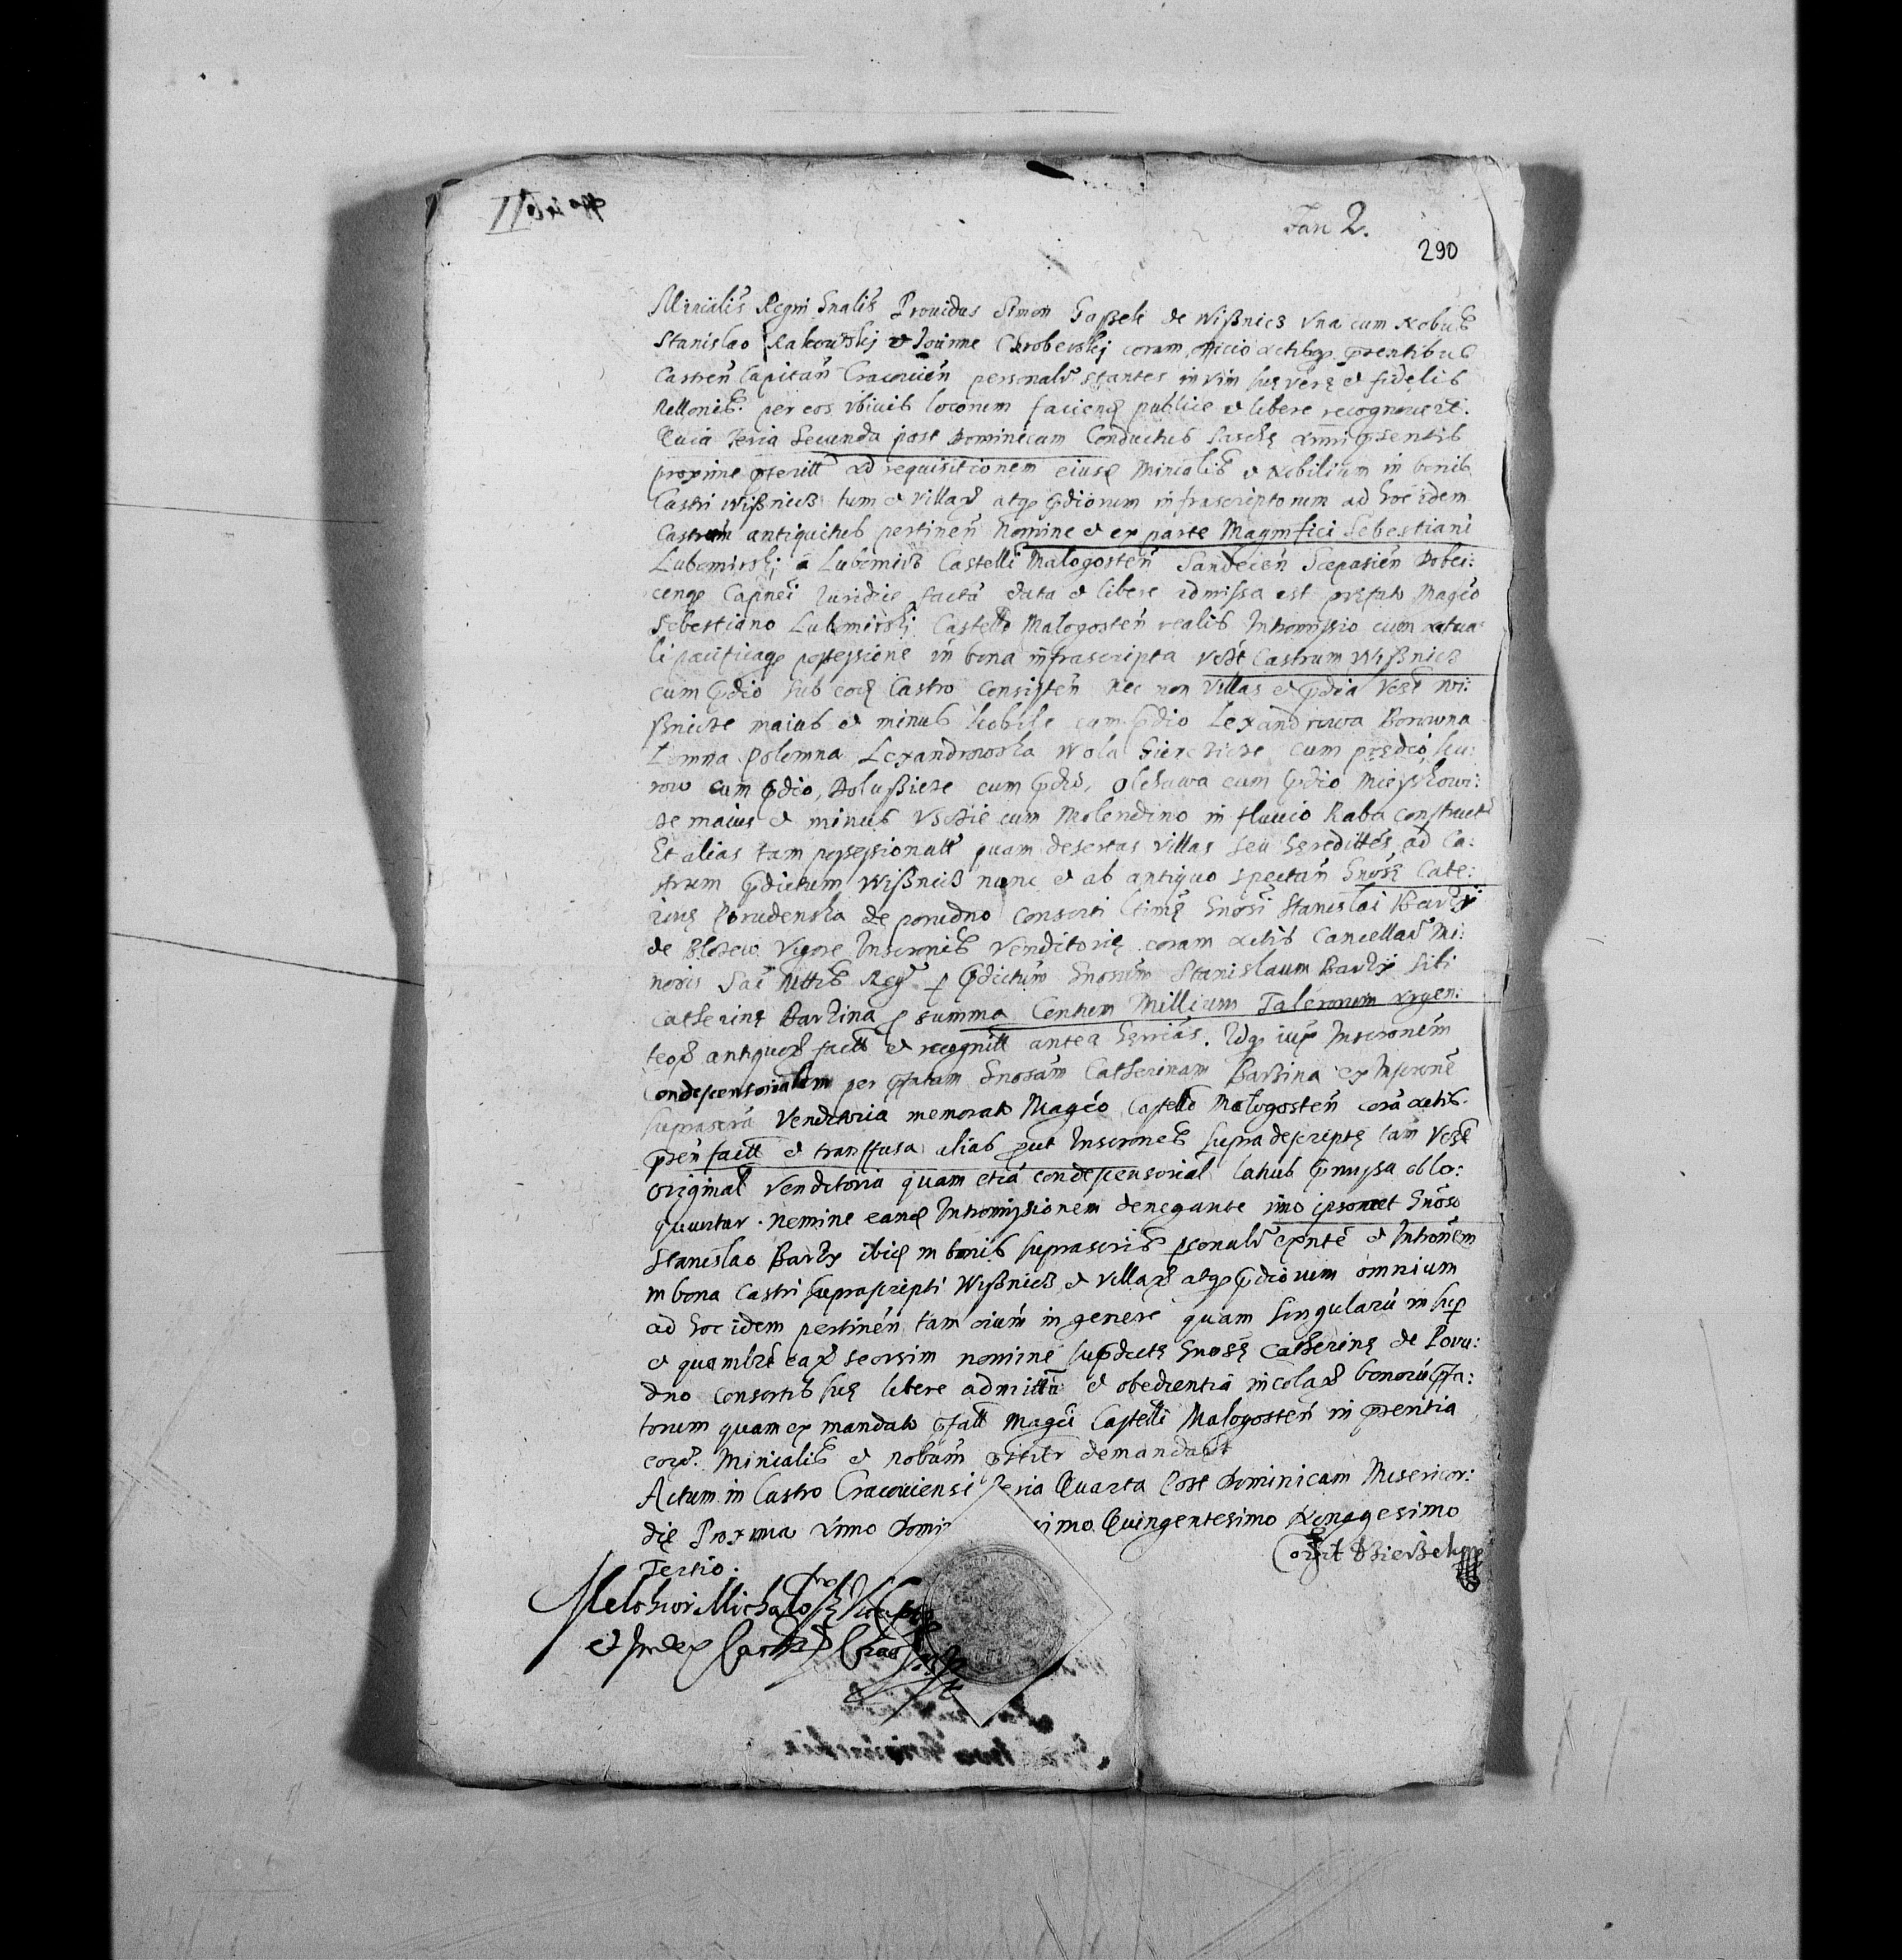 Jan 2.
290
Mincialis Regni Gnalis Prouidus Simon Gaßek de Wißnicz Vna cum Nobus
Stanislao Rakowskj et Joanne Chroberskj coram officio actisq prentibus
Castren Capitan Cracouien personalr stantes in vim suę verę et fidelis
Rellonis per eos vbiuis locorum faciend publice et libere recognouert.
Quia feria Secunda post Dominicam Conductus Paschę Anni prsentis
proxime pteritt ad requisitionem eiusd Minialis et Nobilium in bonis
Castri Wißnicz tum et villar atq pdiorum infrascriptorum ad hoc idem
Castrum antiquitus pertinen Nomine et ex parte Magnifici Sebestiani
Lubomirskj a Lubomirz Castelli Malogosten Sandecien Scepusien Dobci:
cenq Capnei Juridice facta data et libere admissa est prefato Magco
Sebestiano Lubomirskj Castello Malogosten realis Intromissio cum actua
li pacificaq possessione in bona infrascripta vczt Castrum Wißnicz
cum pdio sub eod Castro Consisten Nec non Villas et pdia Vczt Wi:
ßnicze maius et minus Kobile cum pdio Lexandrowa Borowna
Lomna Polomna Lexandrowska Wola Gierczicze cum prędio, Ku:
row cum pdio, Dolußicze cum pdio, Olchawa cum pdio Mieyskowi:
cze maius et minus Vsczie cum Molendino in fluuio Raba construct
Et alias tam possessionatt quam desertas villas seu hęredittes, ad Ca:
strum pdictum Wißnicz nunc et ab antiquo spectan Gnosę Cate:
rinę Porudenska de porudno consorti ltimę Gnosi Stanislai Barzi
de Blozew Vigore Inscronis Venditorię coram actis Cancellar Mi:
noris Sac Mttis Reg p pdictum Gnosum Stanislaum Barzy sibi
Catherinę Barzina p summa Centum Millium Talerorum Argen:
teor antiquor factt et recognitt antea
Condescensorialem per pfatam Gnosam Catherinam Barzina ex Inscrone
suprascra Venditoria memorato Magco Castello Malogosten cora actis
pren factt et transfusa alias prout Inscrones supra descriptę tam Vczt
Original Venditoria quam etia condescensorial latius pmissa oblo:
quuntur. Nemine eand Intromissionem denegante imo ipsomet Gnoso
Stanislao Barzy ibid in bonis suprascris psonalr exnte et Intronem
in bona Castri suprascripti Wißnicz et villar atq pdiorum omnium
ad hoc idem pertinen tam oium in genere quam singularu in
et quamlibt ear seorsim nomine supdictę Gnosę Catherinę de Poru:
dno consortis suę libere admitten et obedientia incolar bonoru pfa:
torum quam ex mandato pfatt Magci Castelli Malogosten in prentia
eord. Minialis et Nobum demandabt
Actum in Castro Cracouiensi feria Quarta Post Dominicam Misericor:
dię Proxima Anno Domi simo Quingentesimo Nonagesimo
Tertio.
Melchior Michalowski Vicecapts
et Judex Castr Crac